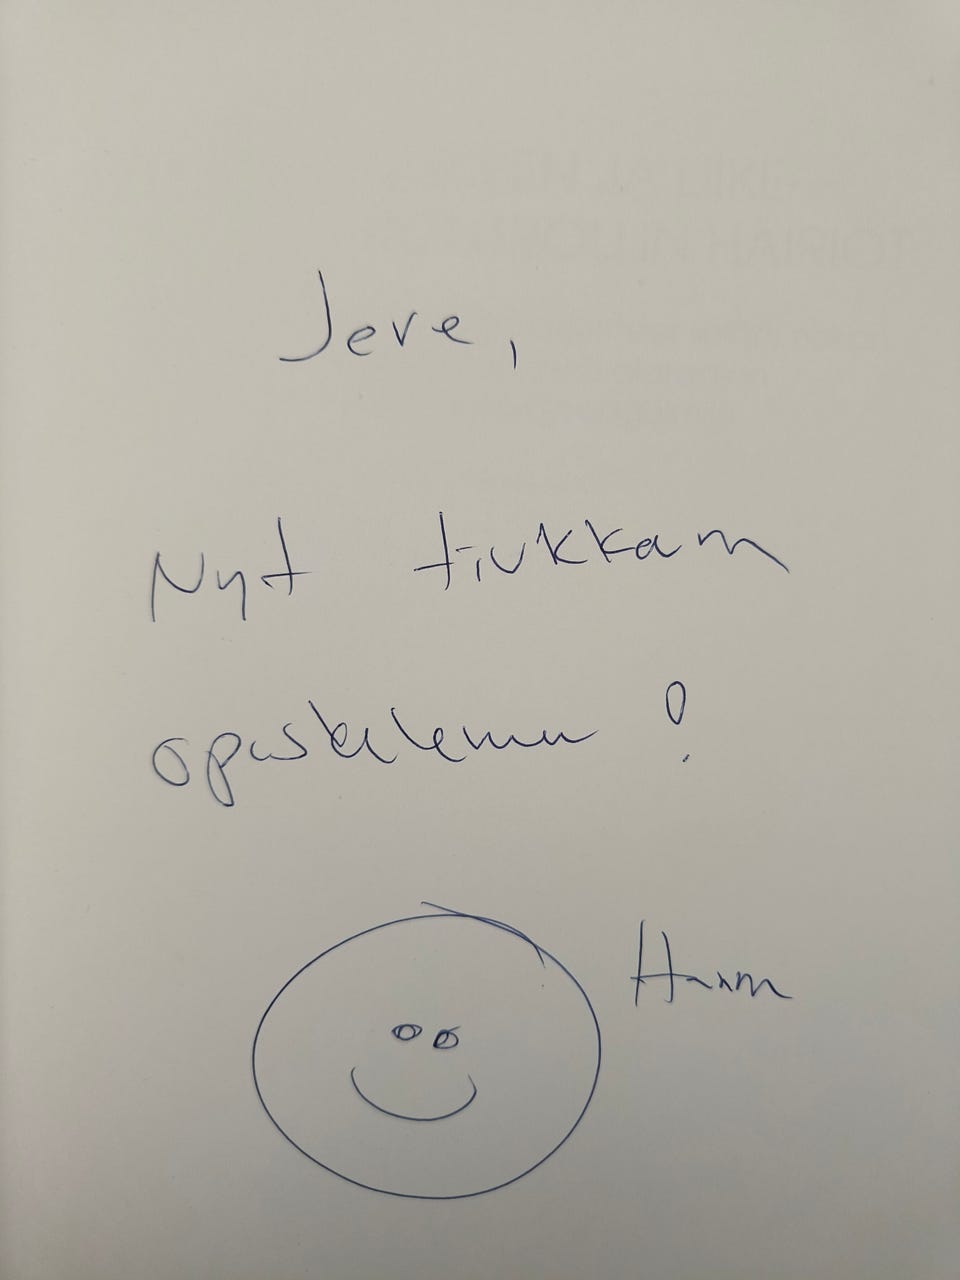 Jere,
Nyt tiukkaan
opiskelemaan!